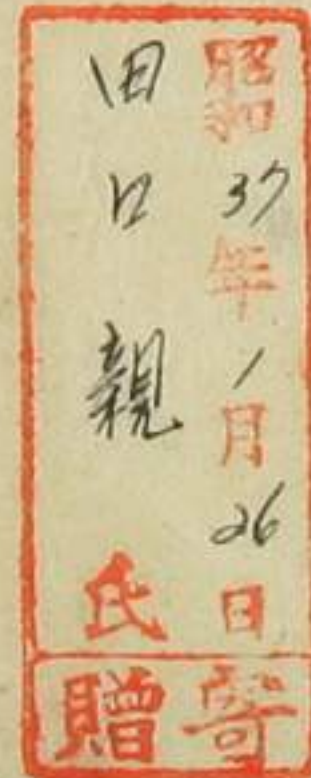 昭和37年1月26日
田口親氏
寄贈